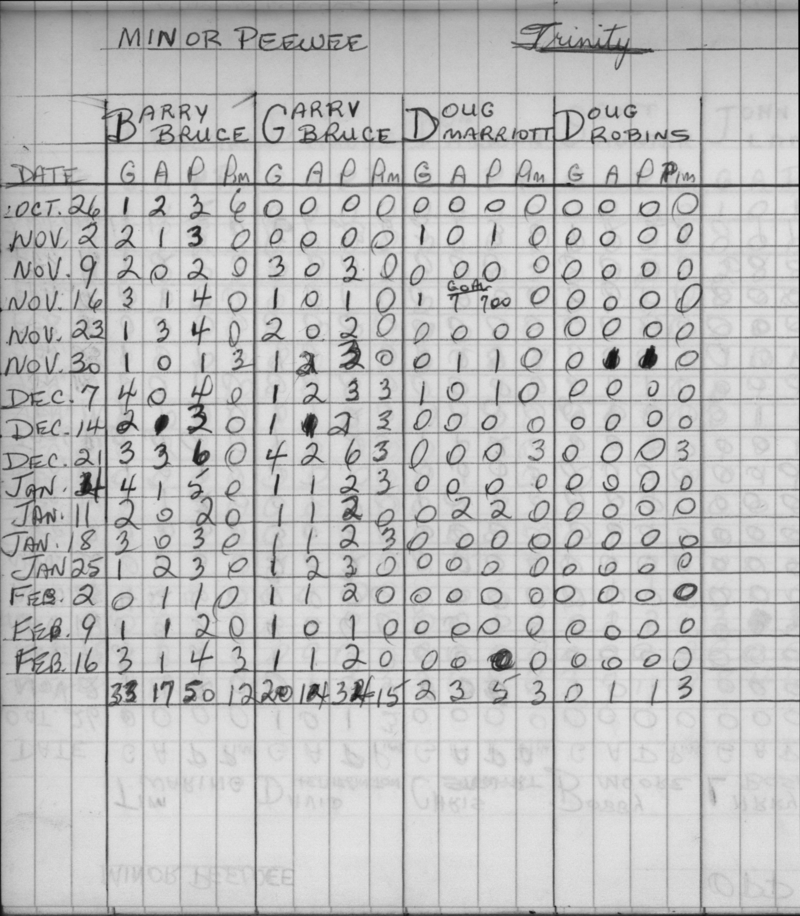 MINOR PEEWEE Trinity
BARRY BRUCE GARRY BRUCE DOUG MARRIOTT DOUG ROBINS
DATE G A P Pim G A P Pim G A P Pim G A P Pim
OCT. 26 1 2 3 6 0 0 0 0 0 0 0 0 0 0 0 0
NOV. 2 2 1 3 0 0 0 0 0 1 0 1 0 0 0 0 0
NOV. 9 2 0 2 0 3 0 3 0 0 0 0 0 0 0 0 0
NOV. 16 3 1 4 0 1 0 1 0 1 0 0 0 0 0
NOV. 23 1 3 4 0 2 0 2 0 0 0 0 0 0 0 0 0
NOV. 30 1 0 1 3 1 2 3 0 0 1 1 0 0 0
DEC. 7 4 0 4 0 1 2 3 3 1 0 1 0 0 0 0 0
DEC. 14 2 0 1 2 3 0 0 0 0 0 0 0 0
DEC. 21 3 3 6 0 4 2 6 3 0 0 0 3 0 0 0 3
JAN. 4 1 5 0 1 1 2 3 0 0 0 0 0 0 0 0
JAN. 11 2 0 2 0 1 1 2 0 0 2 2 0 0 0 0 0
JAN. 18 3 0 3 0 1 1 2 3 0 0 0 0 0 0 0 0
JAN 25 1 2 3 0 1 2 3 0 0 0 0 0 0 0 0 0
FEB. 2 0 1 1 0 1 1 2 0 0 0 0 0 0 0 0 0
FEB. 9 1 1 2 0 1 0 1 0 0 0 0 0 0 0 0 0
FEB. 16 3 1 4 3 1 1 2 0 0 0 0 0 0 0 0
33 17 50 12 20 15 2 3 5 3 0 1 1 3